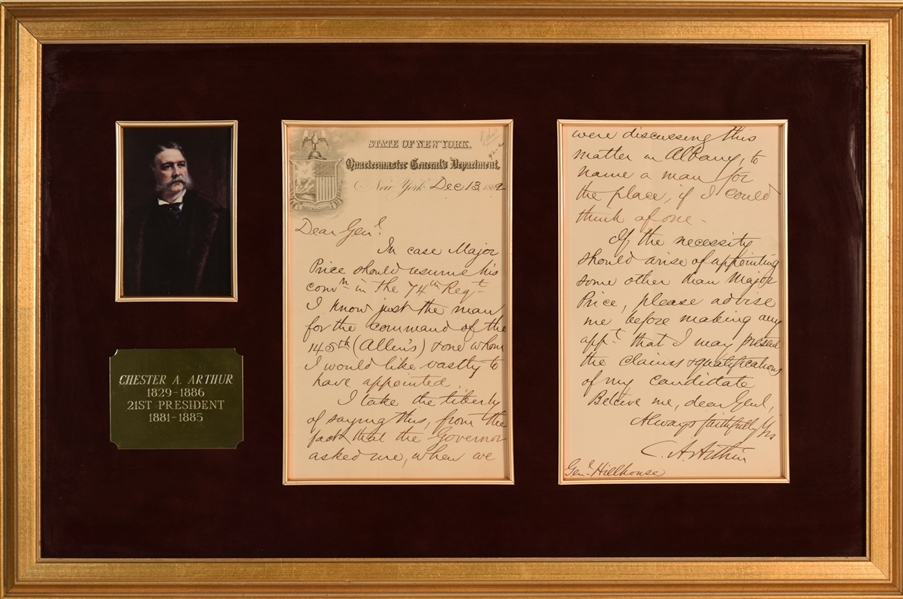 CHESTER A. ARTHUR
1829-1886
21ST PRESIDENT
1881-1885
STATE OF NEW YORK,
Quartermaster General's Department,
New York Dec 13, 1862
Dear Genl.
In case Major
Price should resume his
comn. in the 74th Regt.
I know just the man
for the command of the
145th (Allen's) & one whom
I would like vastly to
have appointed.
I take the liberty
of saying this, from the
fact that the Governor
asked me, when we
were discussing this
matter in Albany, to
name a man for
the place, if I could
think of one.
If the necessity
should arise of appointing
some other than Major
Price, please advise
me before making any
appt. that I may present
the claims & qualifications
of my candidate
Believe me, dear Genl,
Always faithfully Yrs
C. A. Arthur
Genl. Hillhouse